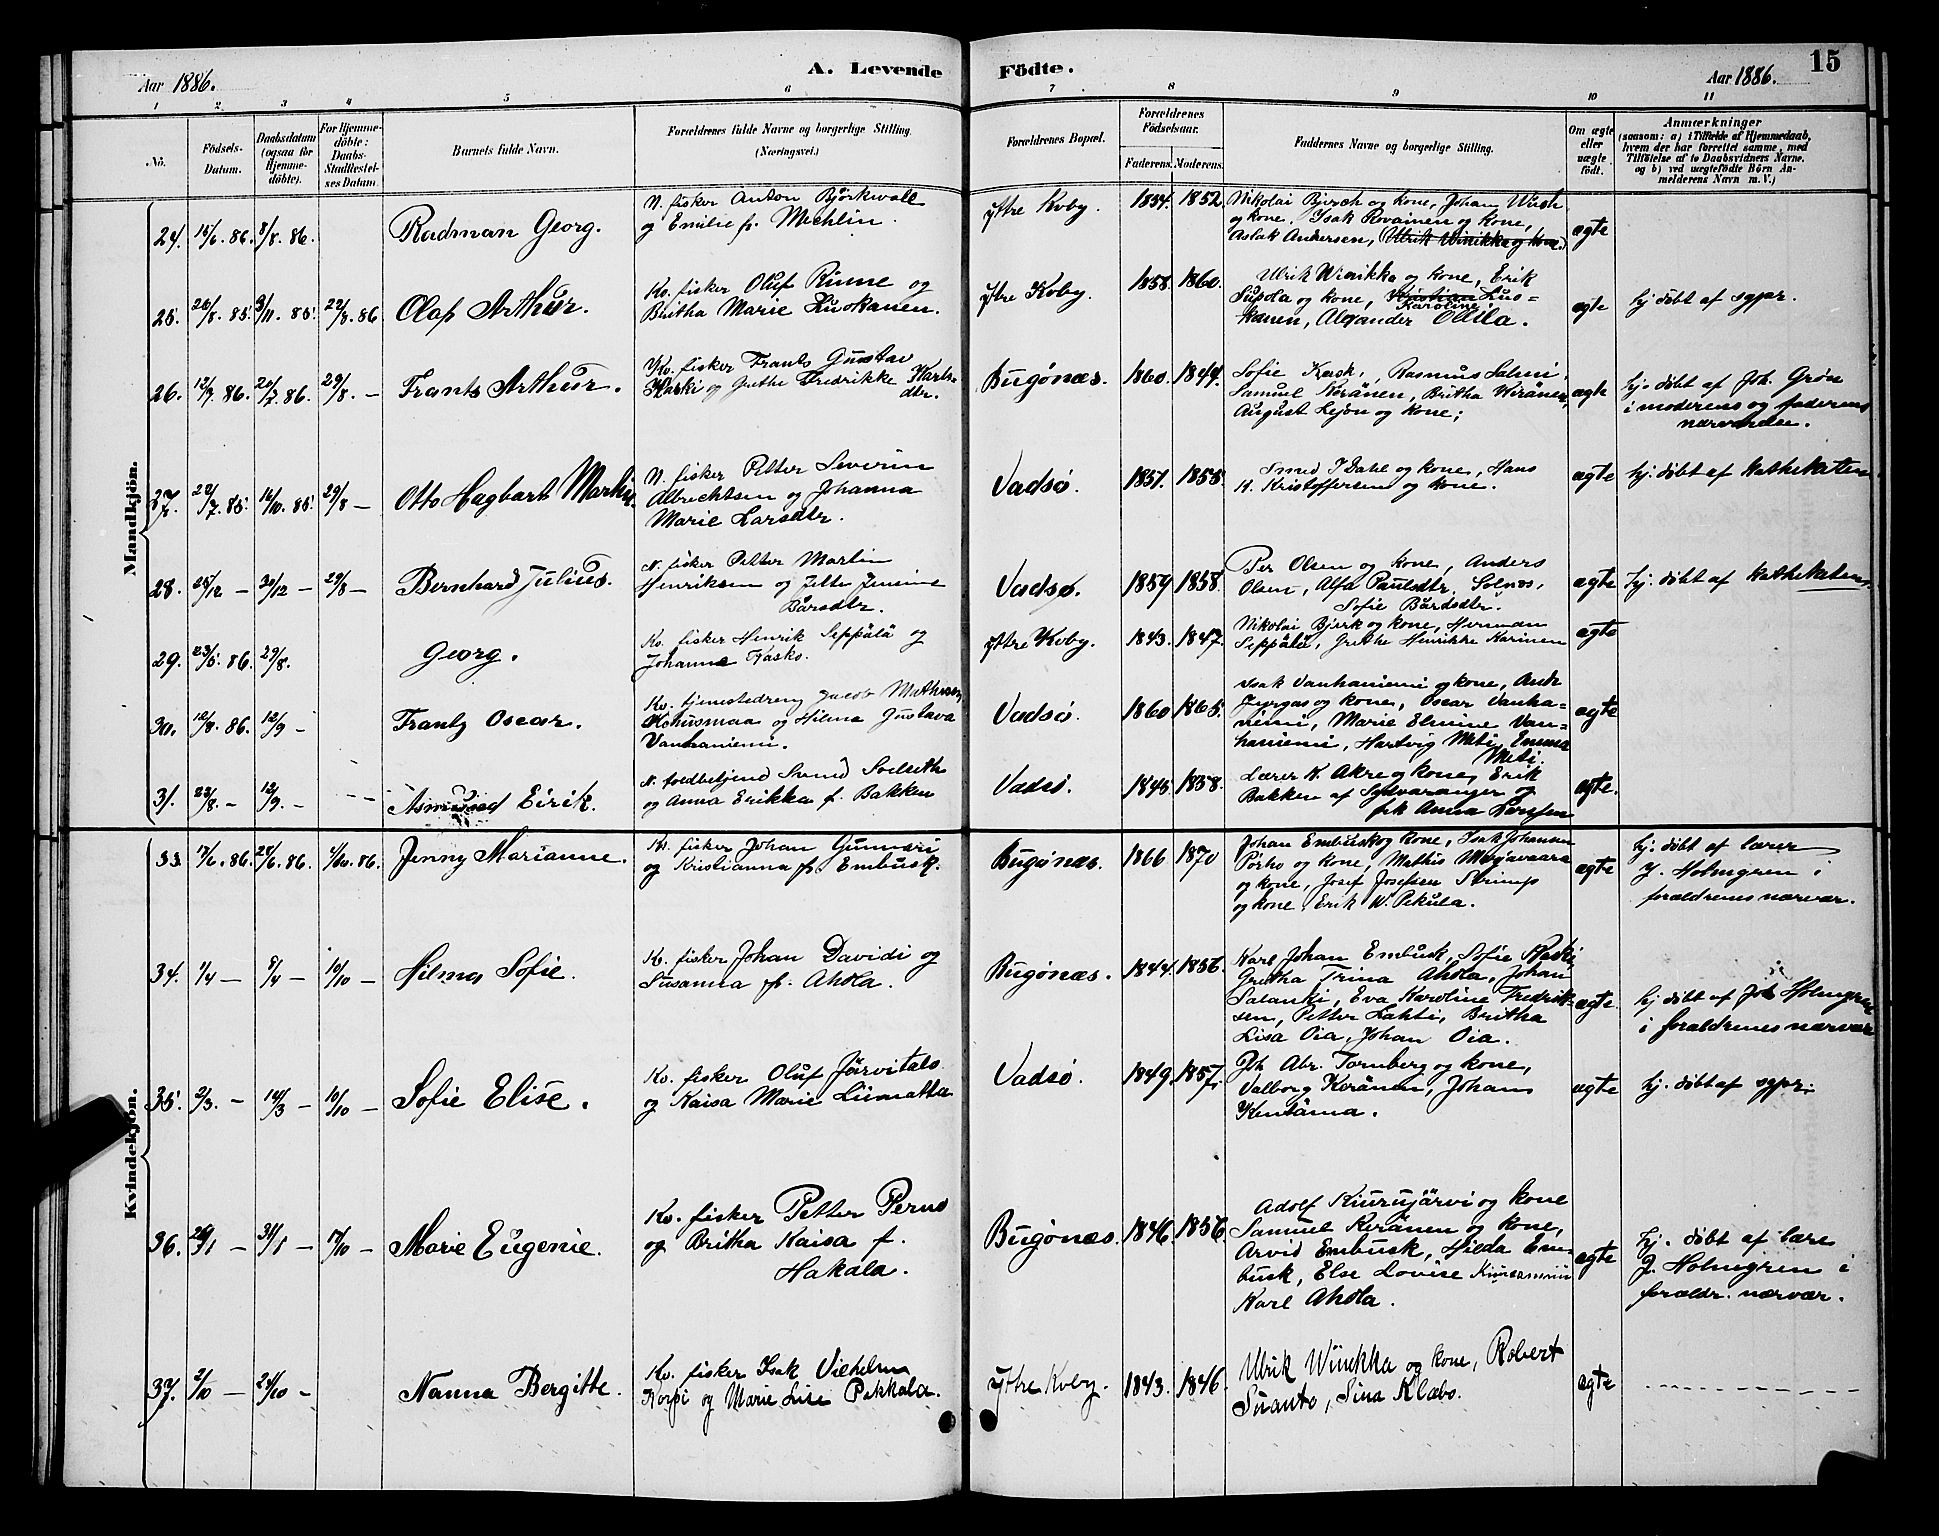 Aar 1886.
A. Levende Födte.
Aar 1886.
15
1 2 3 4 5 6 7 8 9 10 11
No.
Födsels-Datum.
Daabsdatum (ogsaa for Hjemme-döbte).
For Hjemme-döbte: Daabs-Stadfæstel-ses Datum.
Barnets fulde Navn.
Forældrenes fulde Navne og borgerlige Stilling.
(Næringsvei.)
Forældrenes Bopæl.
Forældrenes Födselsaar.
Faderens. Moderens.
Faddernes Navne og borgerlige Stilling.
Om ægte eller uægte födt.
Anmærkninger
(saasom: a) i Tilfælde af Hjemmedaab,
hvem der har forrettet samme, med
Tilföielse af to Daabsvidners Navne,
og b) ved uægtefödte Börn An-
melderens Navn m. V.)
Mandkjön.
24. 15/6. 86. 8/8. 86. Radman Georg.
N. fisker Anton Björkwall
og Emilie f. Michlin.
Yttre Koby. 1854. 1852.
Nikolai Bjirch og kone, Johan Wich
og kone, Isak Rovainen og kone,
Aslak Andersen, (Ulrik Winikka og kone)
ægte
25. 26/8. 85. 9/11. 85. 22/8. 86 Olaf Arthur.
Kv. fisker Oluf Rinne og
Britha Marie Huokanen.
Yttre Koby. 1858. 1860.
Ulrik Winikka og kone, Erik
Supola og kone, Karoline Hus-
kanen, Alexander Ollila.
ægte
hj. döbt af sgpr.
26. 12/7. 86. 20/7. 86. 29/8. — Frants Arthur.
Kv. fisker Frants Gustav
Kaski og Grethe Fredrikke Karls-
dtr.
Bugönæs. 1860. 1844.
Sofie Kask, Rasmus Salmi,
Samuel Keränen, Britha Kiränen,
August Lejon og kone;
ægte
hj. döbt af Joh. Grön
i moderens og faderens
nærværelse.
27. 22/7. 85. 16/10. 85. 29/8 — Otto Hagbart Martin.
N. fisker Petter Severin
Albrechtsen og Johanna
Marie Larsdtr.
Vadsø. 1851. 1855.
Smed J Dahl og kone, Hans
H. Kristoffersen og kone.
ægte
hj. döbt af Kathekaten
28. 25/12 — 30/12 — 29/8 — Bernhard Julius.
N. fisker Petter Martin
Henriksen og Jette Jensine
Bårsdtr.
Vadsø. 1859 1858.
Per Olsen og kone, Anders
Olsen, Alfa Paulsdtr. Solnes,
Sofie Bårdsdtr.
ægte
hj. döbt af Kathekaten.
29. 23/5. 86. 29/8. Georg.
Kv. fisker Henrik Seppälä og
Johanna Kasko.
Yttre Koby. 1843. 1847.
Nikolai Bjerk og kone, Herman
Seppälä, Grethe Henrikke Karinen
ægte
30. 12/8. 86. 12/9 — Frantz Oscar.
Kv. tjenestedreng Jacob Mathisen
Kohusmaa og Hilma Gustava
Vanhaniemi.
Vadsø. 1860 1865.
Isak Vanhaniemi og kone, Anh
Jyrgas og kone, Oscar Vanha-
niemi, Marie Elmine Van-
haniemi, Hartvig Meti, Emma
Meti.
ægte
31. 23/8. — 12/9. — Asmund Eirik.
N. toldbetjend Svend Solseth
og Anna Erikka f. Bakken
Vadsö. 1845. 1858.
Lærer K. Akre og kone, Erik
Bakken af Sydvaranger og
frk Anna Larssen
ægte.
Kvindekjön.
33. 17/6. 86. 24/6. 86. 4/10. 86. Jenny Marianne.
Kv. fisker Johan Gunnari
og Kristianna f. Embusk.
Bugönæs. 1866 1870
Johan Embusk og kone, Isak Johansen
Porho og kone, Mathis Marjavaara
og kone, Josef Josefsen Strimp
og kone. Erik W. Pekula.
ægte
hj. döbt af lærer
J. Holmgren i
foraldrenes nærvær.
34. 1/4 — 8/4 — 10/10 — Hilma Sofie.
Kv. fisker Johan Davidi og
Susanna f. Ahola.
Bugönæs. 1844. 1856.
Karl Johan Embusk, Sofie Kaski,
Gretha Trina Ahola, Johan
Salanki, Eva Karoline Fredrik-
sen, Petter Lahti, Britha
Lisa Oia, Johan Oia.
ægte.
hj. döbt af Joh Holmgren
i foraldrenes nærvær
35. 9/3. — 14/3 — 10/10 — Sofie Elise.
Kv. fisker Oluf Järvitals
og Kaisa Marie Liimatta
Vadsö. 1849. 1857.
Joh. Abr. Tornberg og kone,
Valborg Keränen, Johans
Kentäma.
ægte
hj. döbt af sgpr.
36. 26/1 — 31/1 — 17/10 — Marie Eugenie.
Kv. fisker Petter Perno
og Britha Kaisa f.
Hakala.
Bugönæs. 1846. 1856.
Adolf Kiurujärvi og kone
Samuel Keränen og kone,
Arvid Embusk, Hilda Em-
busk, Else Lovise
Karl Ahola.
ægte
hj. döbt af lære
J. Holmgren i
foraldr. nærvær.
37. 2/10 — 24/10 — Nanna Bergitte.
Kv. fisker Isak Vilhelm
Korpi og Marie Lise Pekkala.
Yttre Koby. 1843. 1846.
Ulrik Winikka og kone, Robert
Suanto, Sina Klabo.
ægte